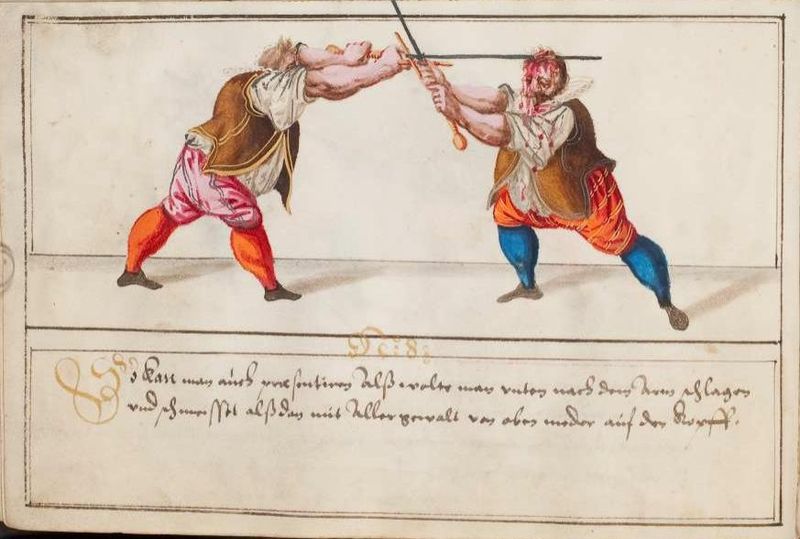 No: 8:
Es kan man auch præsentiren Alß wolte man unten nach dem Arm schlagen
und schmeisset alßdan mit Aller gewalt von oben nieder auf den Kopff.